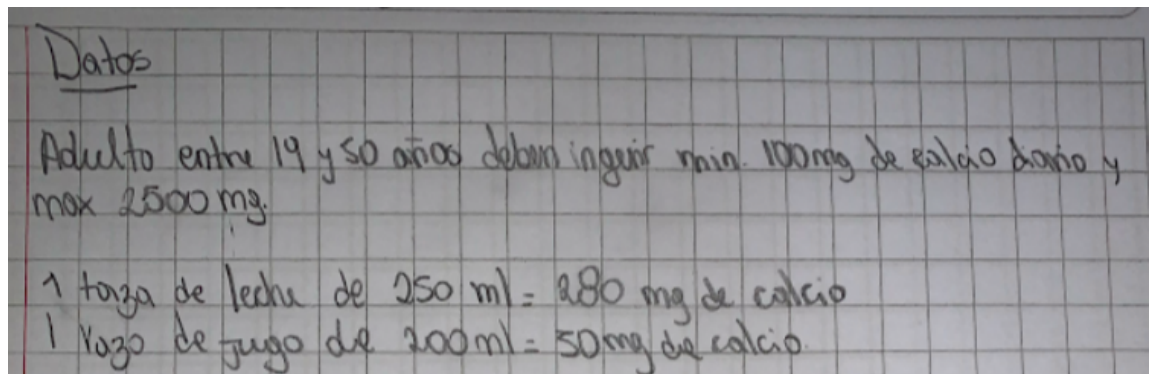 Datos
Adulto entre 19 y 50 años deben ingerir min. 100mg de calcio diario y
max 2500 mg.
1 tazza de leche de 250 ml = 280 mg de calcio
1 vazo de jugo de 200ml = 50mg de calcio.